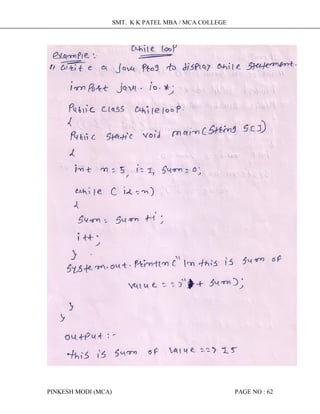 SMT. K K PATEL MBA / MCA COLLEGE
while loop
example :
// Write a Java Prog to display while Statement.
import java.io.*;
Public class whileloop.
{
Public static void main(String s[])
{
int n=5, i=1, sum=0;
while (i<=n)
{
sum = sum +i;
i++;
}
System.out.Println(" \n this is sum of
value ==>" + sum);
}
}
output :-
this is sum of value ==> 15
PINKESH MODI (MCA) PAGE NO : 62